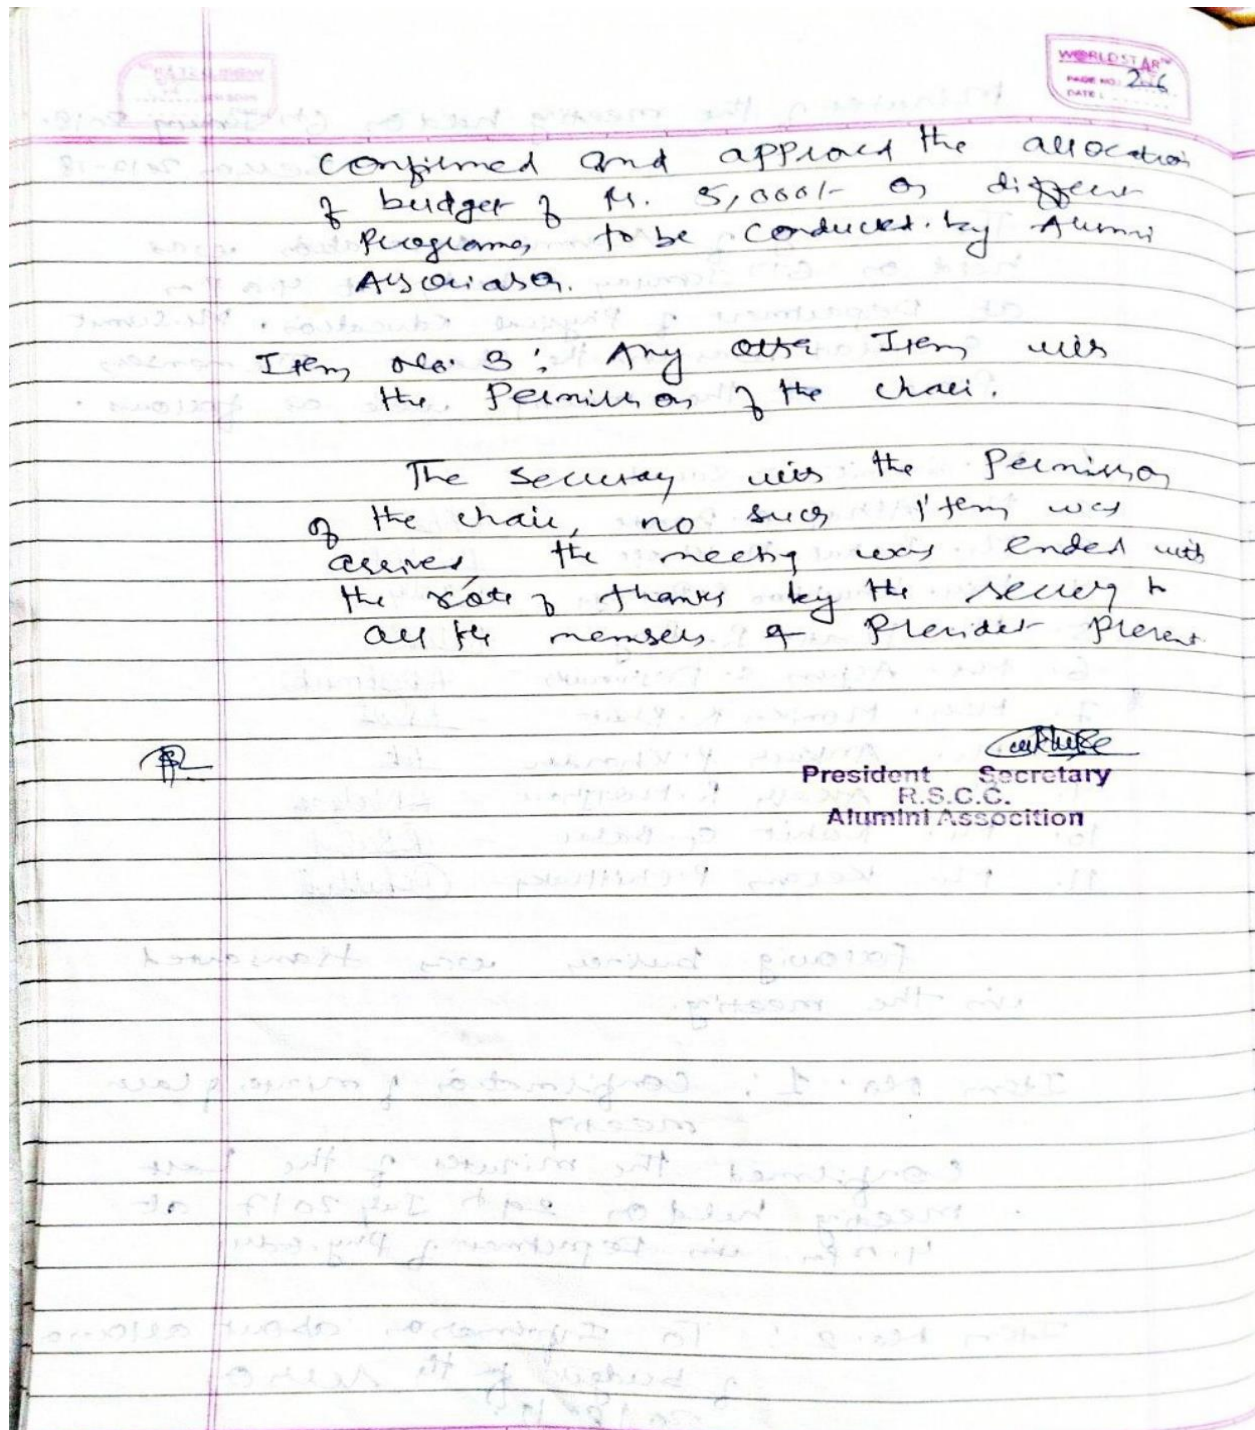 WORLDSTAR™
PAGE NO.: 206
DATE:
confirmed and approved the allocation
of budget of Rs. 5,000/- on different
Programs, to be conducted by Alumni
Association.
Item No. 3: Any other Item with
the Permission of the chair.
The Secretary with the Permission
of the chair, no such item was
arrived, the meeting was ended with
the vote of thanks by the secretary to
all the members & President Present
President Secretary
R.S.C.C.
Alumini Assocition